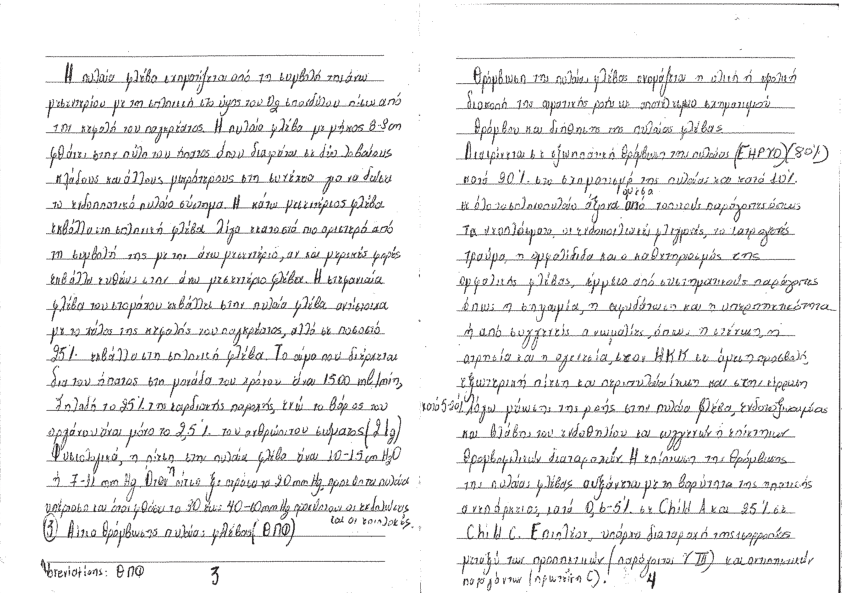 Η πυλαία φλέβα σχηματίζεται από τη συμβολή της άνω
μεσεντερίου με τη σπληνική στο ύψος του Ο2 σπονδύλου πίσω από
την κεφαλή του παγκρέατος. Η πυλαία φλέβα με μήκος 8-9cm
φθάνει στην πύλη του ήπατος όπου διαιρείται σε δύο λοβαίους
κλάδους και άλλους μικρότερους στη συνέχεια για να δώσει
το ενδοηπατικό πυλαίο σύστημα. Η κάτω μεσεντέριος φλέβα
εκβάλλει στη σπληνική φλέβα λίγα εκατοστά πιο αριστερά από
τη συμβολή της με την άνω μεσεντέριο, αν και μερικές φορές
εκβάλλει ευθέως στην άνω μεσεντέριο φλέβα. Η στεφανιαία
φλέβα του στομάχου εκβάλλει στην πυλαία φλέβα αντίστοιχα
με το χείλος της κεφαλής του παγκρέατος, αλλά σε ποσοστό
25% εκβάλλει στη σπληνική φλέβα. Το αίμα που διέρχεται
δια του ήπατος στη μονάδα του χρόνου είναι 1500 ml/min,
δηλαδή το 25% της καρδιακής παροχής, ενώ το βάρος του
οργάνου είναι μόνο το 2,5% του ανθρώπινου σώματος (2kg)
Φυσιολογικά, η πίεση στην πυλαία φλέβα είναι 10-15cm H2O
ή 7-11 mm Hg. Όταν η πίεση ξεπεράσει το 20mm Hg, προκύπτει πυλαία
υπέρταση και όταν φθάσει το 30 έως 40-60mm Hg προκύπτουν οι εκδηλώσεις
και οι επιπλοκές.
(3) Αίτια θρόμβωσης πυλαίας φλέβας (ΘΠΦ)
Abreviations: ΘΠΦ
3
Θρόμβωση της πυλαίας φλέβας ονομάζεται η ολική ή μερική
διακοπή της αιματικής ροής ως αποτέλεσμα σχηματισμού
θρόμβου και διήθησης της πυλαίας φλέβας.
Διακρίνεται σε εξωηπατική θρόμβωση της πυλαίας (EHPVO) (80%)
κατά 90% στο σχηματισμό της πυλαίας και κατά 10%
σε όλο το σπληνοπυλαίο άξονα από τοπικούς παράγοντες όπως
άμεσα
τα νεοπλάσματα, οι ενδοκοιλιακές φλεγμονές, το ιατρογενές
τραύμα, η ομφαλίτιδα και ο καθετηριασμός της
ομφαλικής φλέβας, έμμεσα από συστηματικούς παράγοντες
όπως η σηψαιμία, η αφυδάτωση και η υπερπηκτικότητα
ή από συγγενείς ανωμαλίες, όπως η στένωση, η
ατρησία και η αγενεσία, στον ΗΚΚ με άμεση προσβολή,
εξωτερική πίεση και περιπυλαία ίνωση και στην κίρρωση
κατά 5-20% λόγω μείωσης της ροής στην πυλαία φλέβα, ενδοτοξιναιμίας
και βλάβης του ενδοθηλίου και συγγενών ή επίκτητων
θρομβοφιλικών διαταραχών. Η επίπτωση της θρόμβωσης
της πυλαίας φλέβας αυξάνεται με τη βαρύτητα της ηπατικής
ανεπάρκειας, κατά 0,6-5% σε Child A και 25% σε
Child C. Επιπλέον, υπάρχει διαταραχή της ισορροπίας
μεταξύ των προπηκτικών (παράγοντας VIII) και αντιπηκτικών
παραγόντων (πρωτεΐνη C).
4